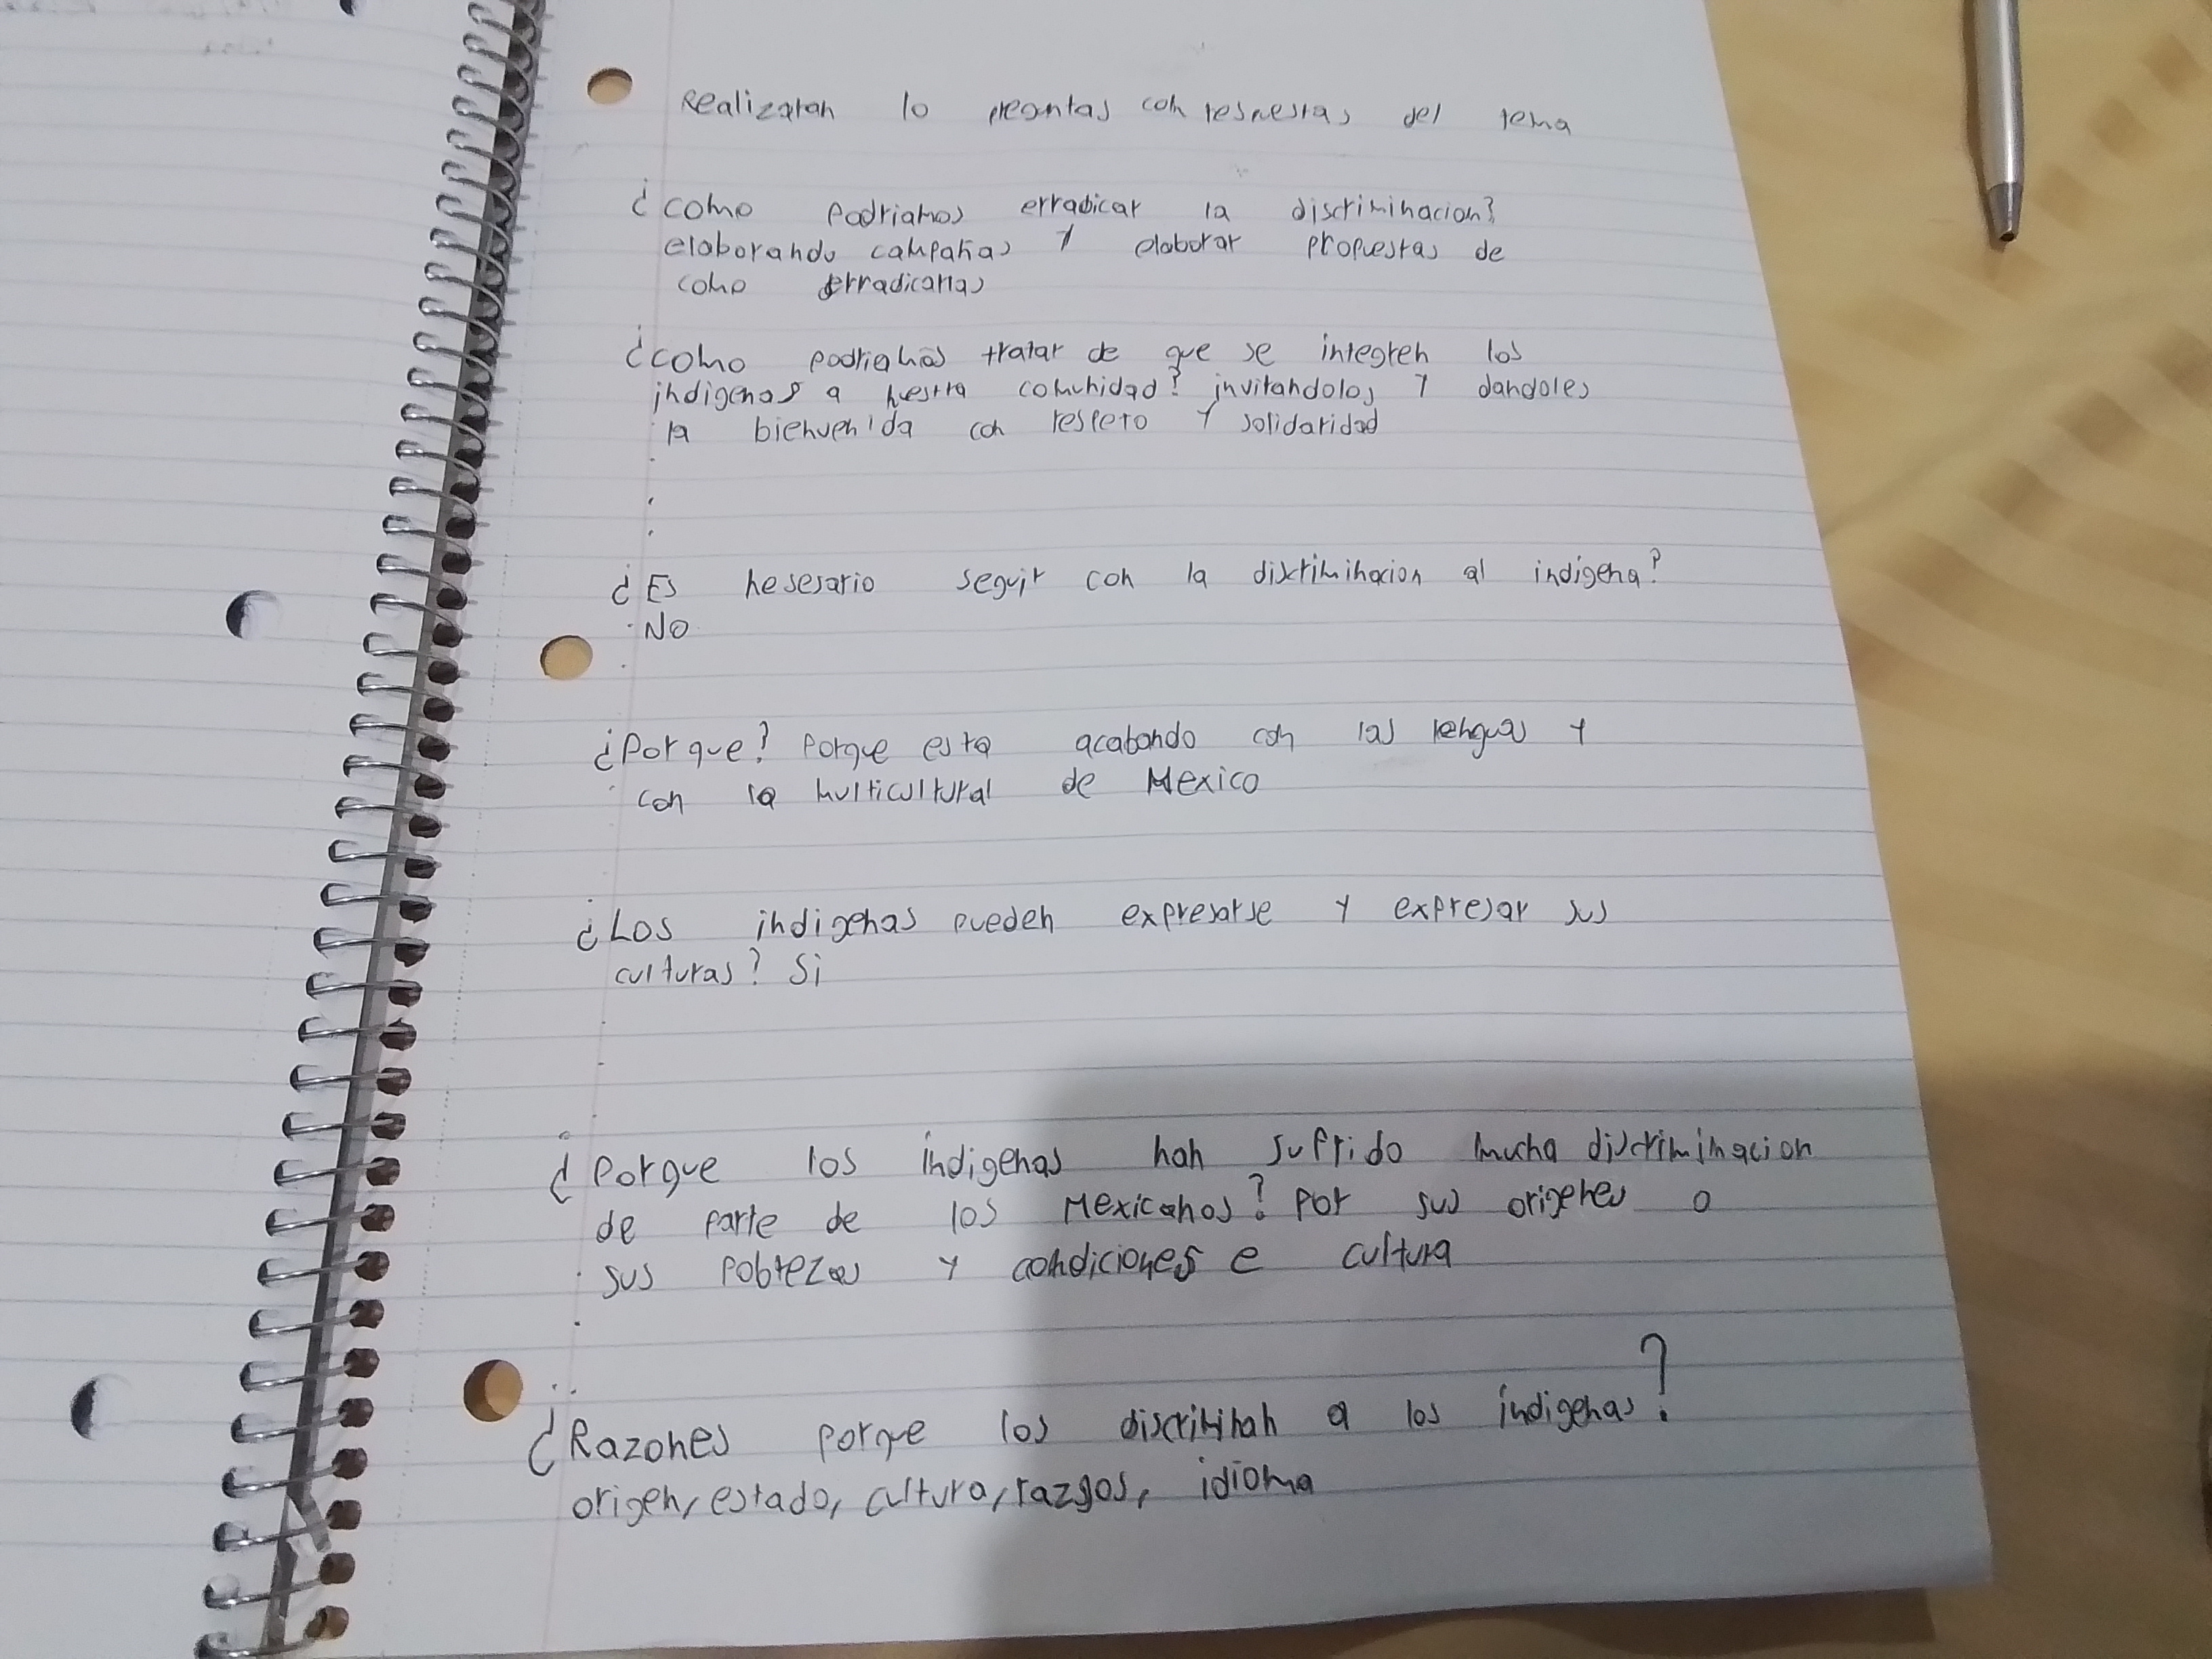 Realizaran 10 preguntas con respuestas del tema
¿como podriamos erradicar la discriminacion?
elaborando campañas y elaborar propuestas de
como erradicarlas
¿como podriamos tratar de que se integren los
indigenas a nuestra comunidad? invitandolos y dandoles
la bienvenida con respeto y solidaridad
¿Es nesesario seguir con la discriminacion al indigena?
No
¿Por que? Porque esta acabando con las lenguas y
con la multicultural de Mexico
¿Los indigenas pueden expresarse y expresar sus
culturas? Si
¿Porque los indigenas han sufrido mucha discriminacion
de parte de los Mexicanos? Por sus origenes o
sus pobrezas y condiciones e cultura
¿Razones porque los discriminan a los indigenas?
origen, estado, cultura, razgos, idioma